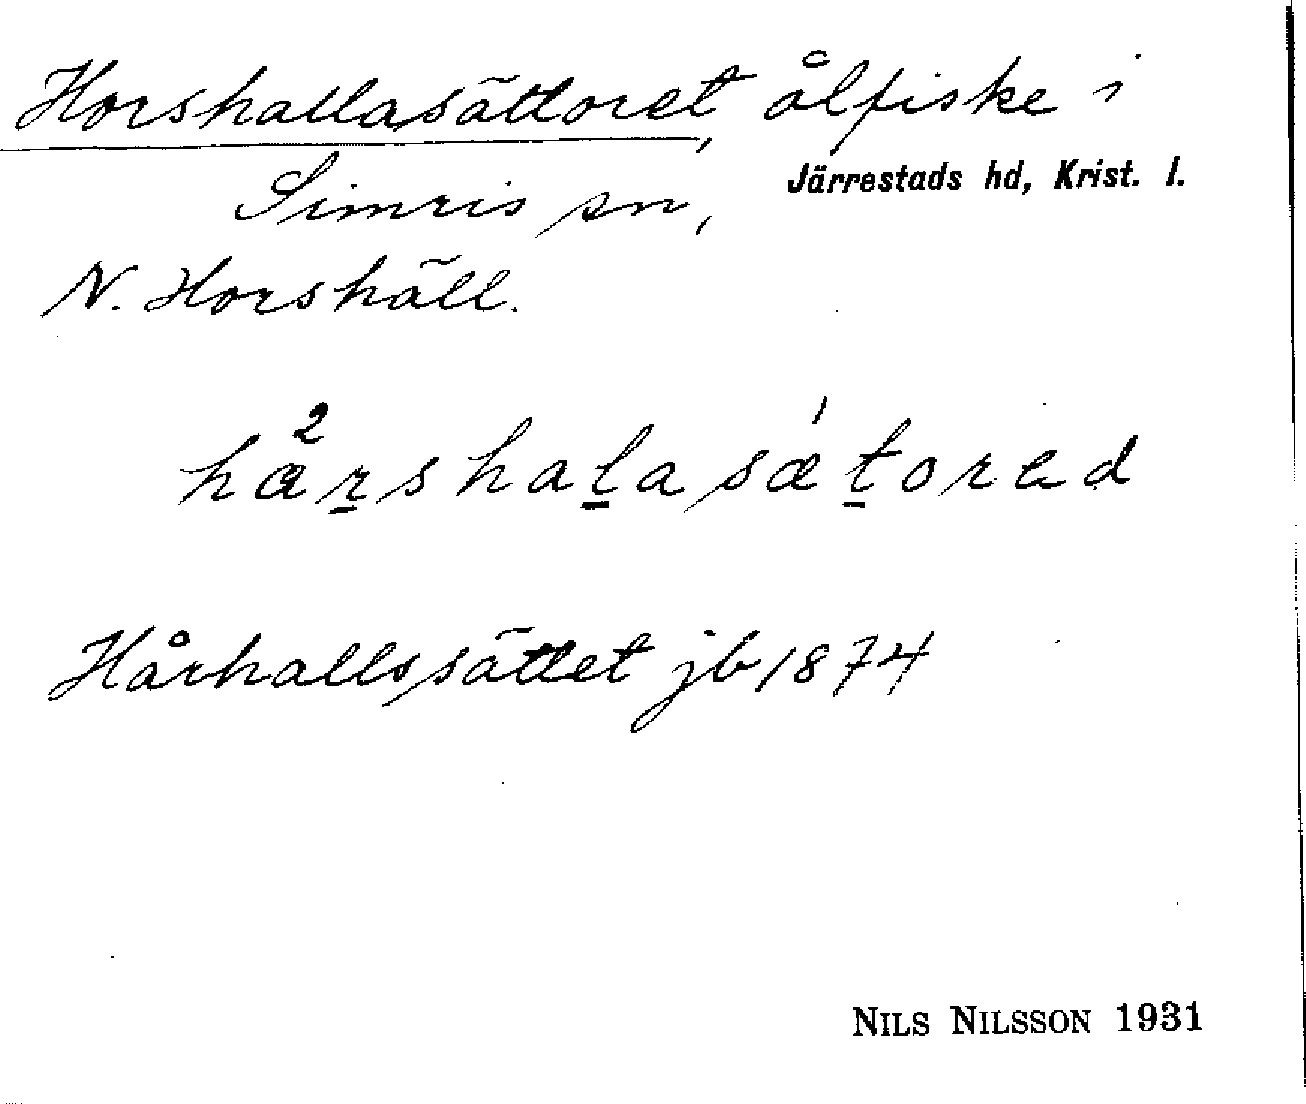 Horshallasättoret, ålfiske i
Simris sn, Järrestads hd, Krist. l.
N. Horshäll.
hårshalasætorad
Hårhallssättet jb 1874
NILS NILSSON 1931